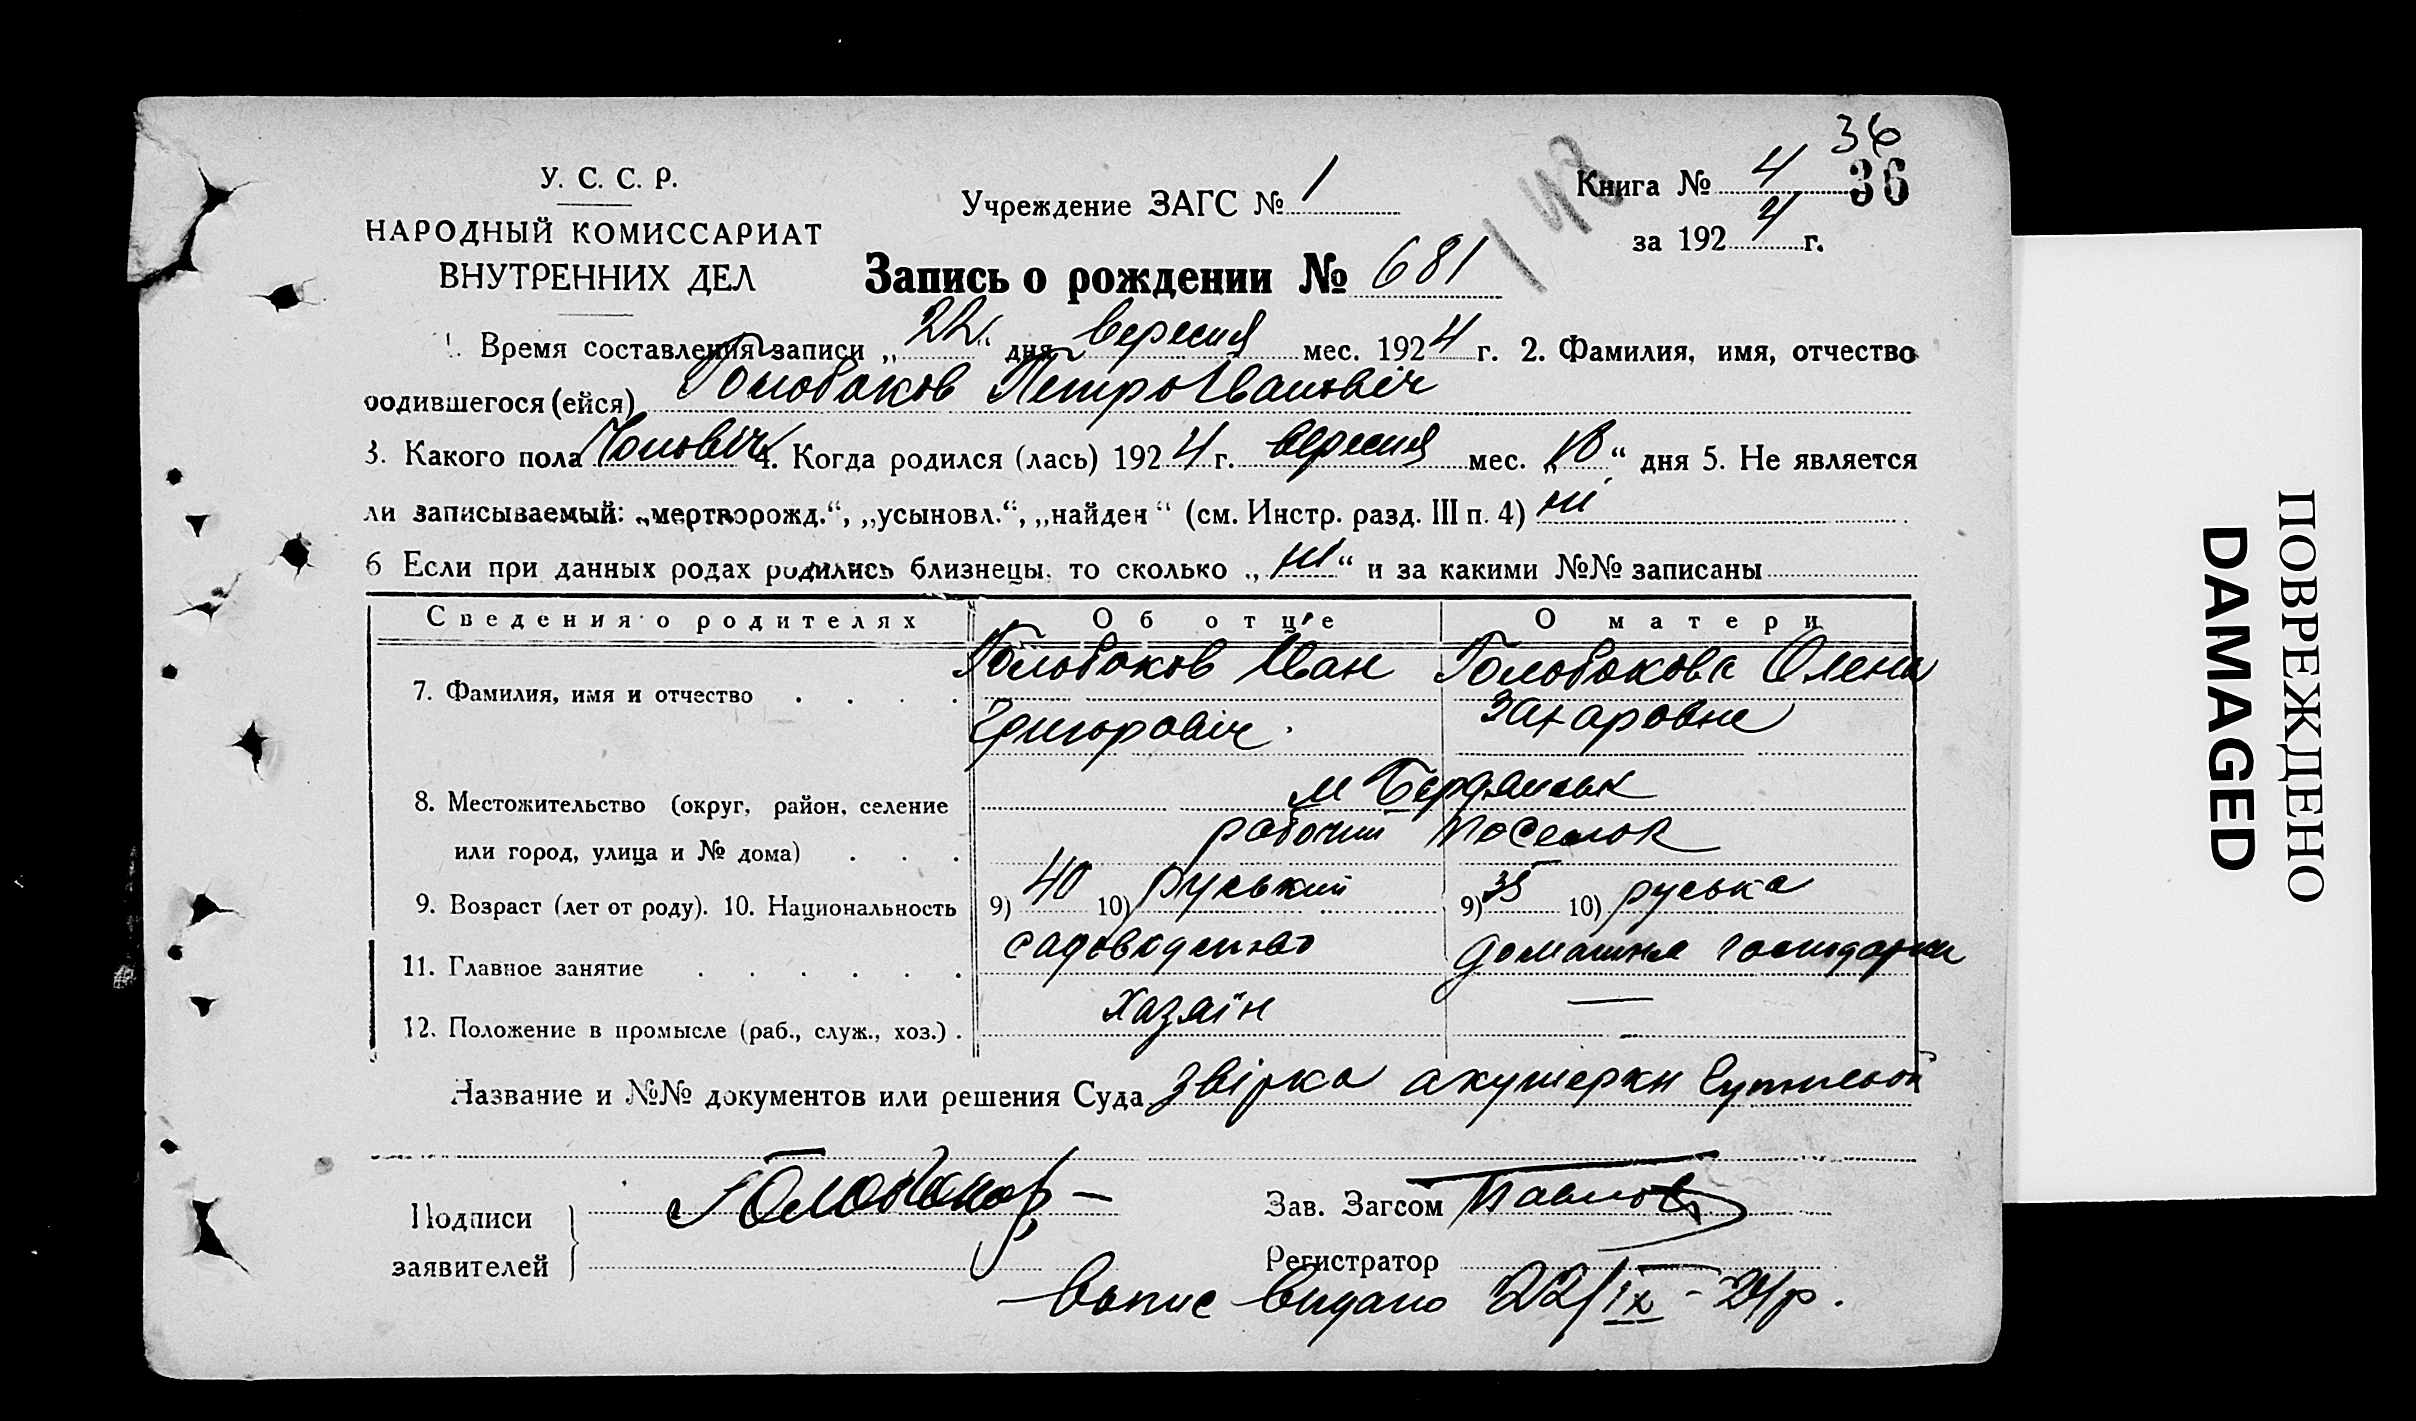 36
У. С. С. Р. Учреждение ЗАГС № 1 Книга № 4 36
148
НАРОДНЫЙ КОМИССАРИАТ за 1924 г.
ВНУТРЕННИХ ДЕЛ Запись о рождении № 681
1. Время составления записи „22“ дня вересня мес. 1924 г. 2. Фамилия, имя, отчество
родившегося (ейся) Голобоков Петро Iвановiч
3. Какого пола Чоловiч 4. Когда родился (лась) 1924 г. вересня мес. „18“ дня 5. Не является
ли записываемый: „мертворожд.“, „усыновл.“, „найден“ (см. Инстр. разд. III п. 4) нi
6 Если при данных родах родились близнецы, то сколько „нi“ и за какими №№ записаны
Сведения о родителях Об отце О матери
Голобоков Iван Голобокова Олена
7. Фамилия, имя и отчество . . . .
Григоровiч Захаровне
8. Местожительство (округ, район, селение м Бердянськ
или город, улица и № дома) . . . рабочий поселок
9. Возраст (лет от роду). 10. Национальность 9) 40 10) руський 9) 35 10) руська
11. Главное занятие . . . . . . садоводство домашня господарки
12. Положение в промысле (раб., служ., хоз.) . Хазяїн —
Название и №№ документов или решения Суда звiрка акушерки
Подписи Голобоков Зав. Загсом Павлов
заявителей Регистратор
Випис видано 22/IX - 24р.
ПОВРЕЖДЕНО
DAMAGED